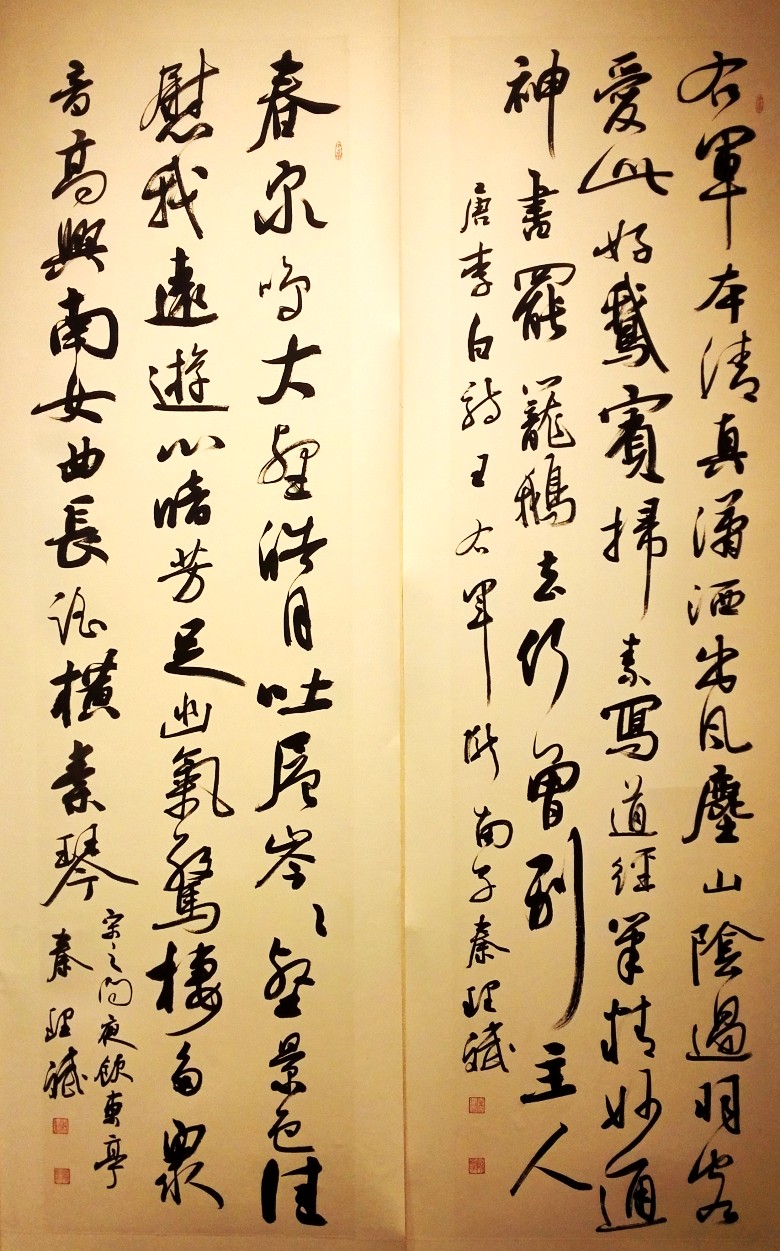 右軍本清真瀟洒出風塵山陰過羽客
愛此好鵞賓掃素寫道經筆精妙通
神書罷籠鵝去何曾別主人
唐李白詩王右軍 南子秦理斌
春泉鳴大壑皓月吐層岑岑壑景色佳
慰我遠遊心暗芳足幽氣驚棲多眾
音高興南女曲長謠橫素琴
宋之問夜飲東亭
秦理斌